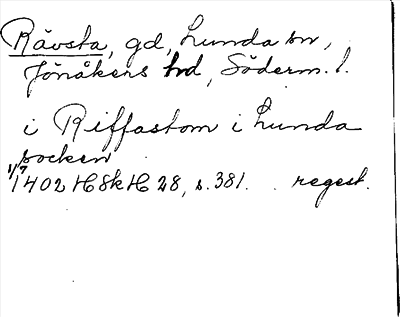 Rävsta, gd, Lunda sn,
Jönåkers hd, Söderm. l.
i Riffastom i Lunda
socken
1/7 1402 HSkH 28, s. 381. regest.